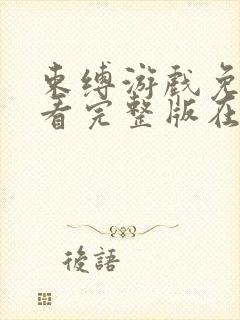 束缚游戏免
看完整版在
後語